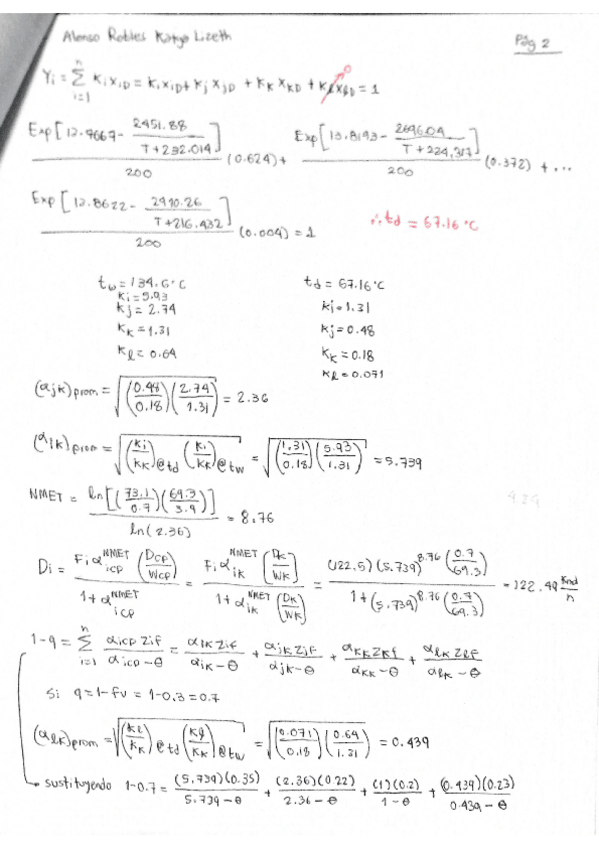 Alonso Robles Katya Lizeth
Pág 2
Yi = Σ(i=1 → n) kixiD = kixiD + kj xjD + kK xKD + kℓxℓD = 1
0
Exp[13.9667 - 2451.88/(T+232.014)]/200 (0.624) + Exp[13.8193 - 2696.04/(T+224.317)]/200 (0.372) + ...
Exp[13.8622 - 2910.26/(T+216.432)]/200 (0.004) = 1
∴ td = 67.16 °C
tw = 134.6 °C
ki = 5.93
kj = 2.74
kK = 1.31
kℓ = 0.64
td = 67.16 °C
ki = 1.31
kj = 0.48
kK = 0.18
kℓ = 0.071
(αjK)prom = √((0.48/0.18)(2.74/1.31)) = 2.36
(αiK)prom = √((ki/kK)@td (ki/kK)@tw) = √((1.31/0.18)(5.93/1.31)) = 5.739
NMET = ln[(73.1/0.7)(69.3/3.9)]/ln(2.36) = 8.76
Di = Fi αicp^NMET (Dcp/Wcp)/(1+αicp^NMET (Dcp/Wcp)) = Fi αiK^NMET (DK/WK)/(1+αiK^NMET (DK/WK)) = (122.5)(5.739)^8.76 (0.7/69.3)/(1+(5.739)^8.76 (0.7/69.3)) = 122.49 Kmol/h
1-q = Σ(i=1 → n) αicp ziF/(αicp-θ) = αiK ziF/(αiK-θ) + αjK zjF/(αjK-θ) + αKK zKF/(αKK-θ) + αℓK zℓF/(αℓK-θ)
Si q = 1-fv = 1-0.3 = 0.7
(αℓK)prom = √((kℓ/kK)@td (kℓ/kK)@tw) = √((0.071/0.18)(0.64/1.31)) = 0.439
sustituyendo 1-0.7 = (5.739)(0.35)/(5.739-θ) + (2.36)(0.22)/(2.36-θ) + (1)(0.2)/(1-θ) + (0.439)(0.23)/(0.439-θ)